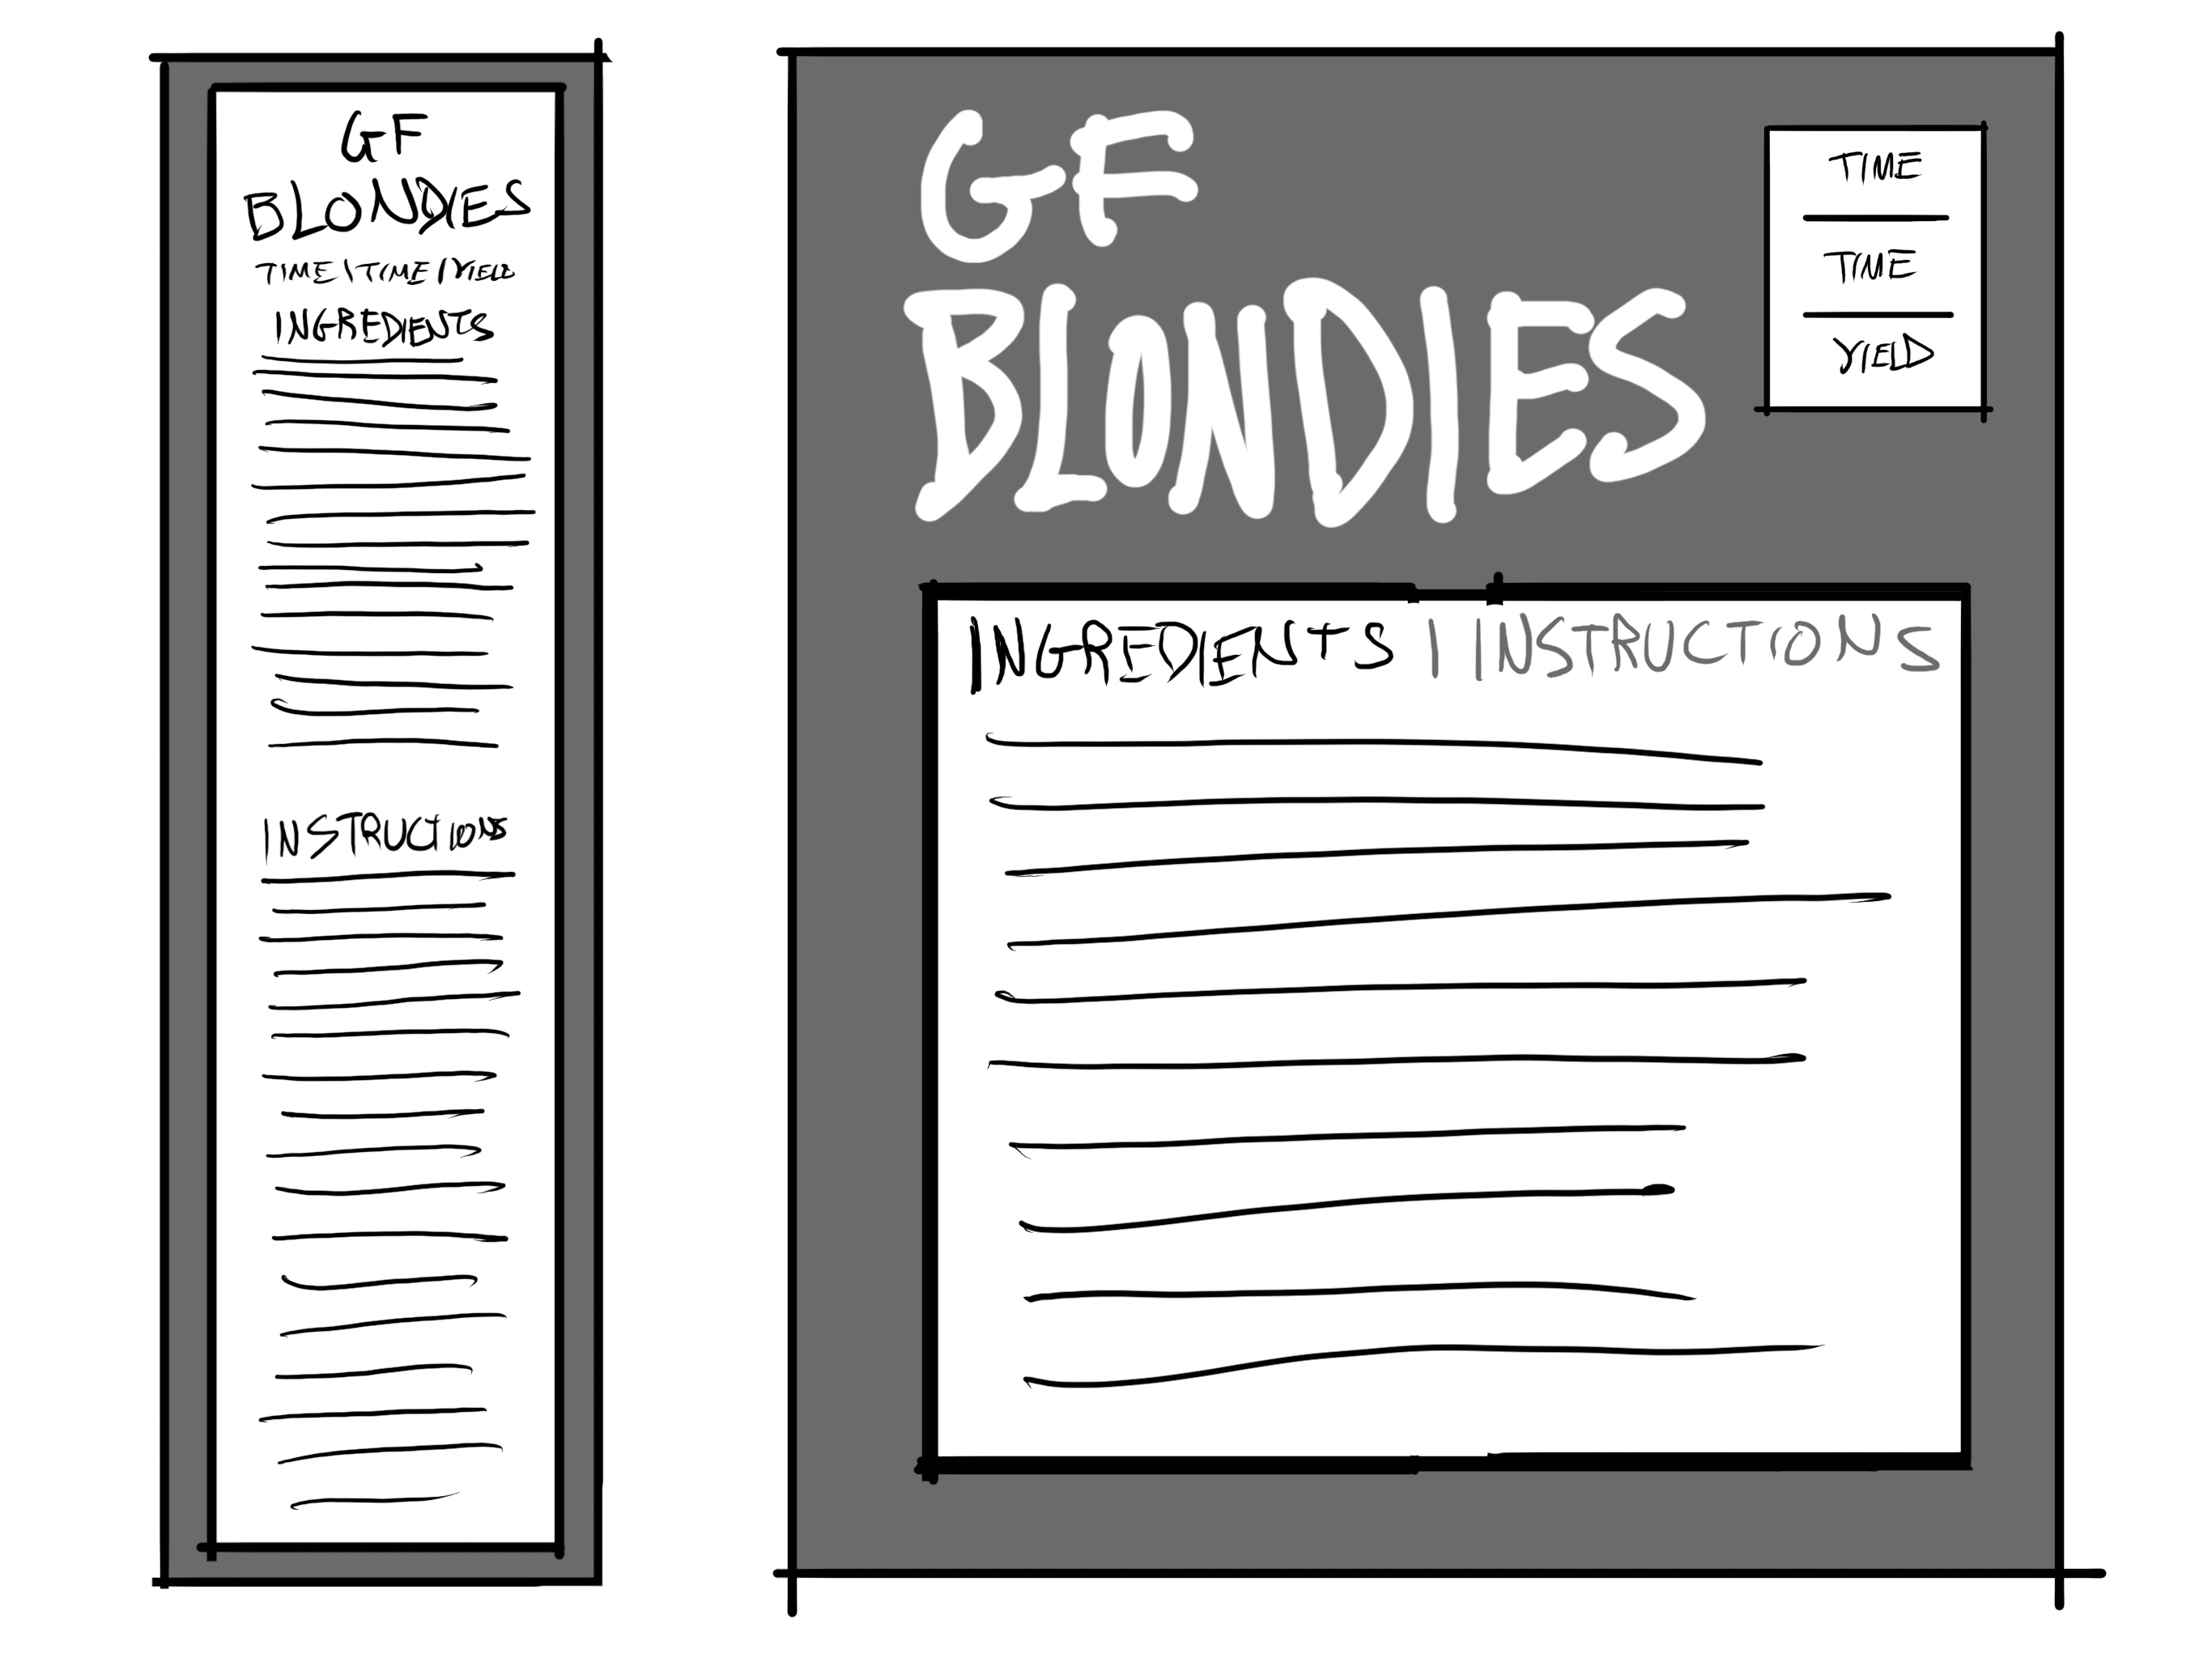 GF
BLONDIES
TIME | TIME | YIELD
INGREDIENTS
INSTRUCTIONS
GF
BLONDIES
TIME
TIME
YIELD
INGREDIENTS | INSTRUCTIONS